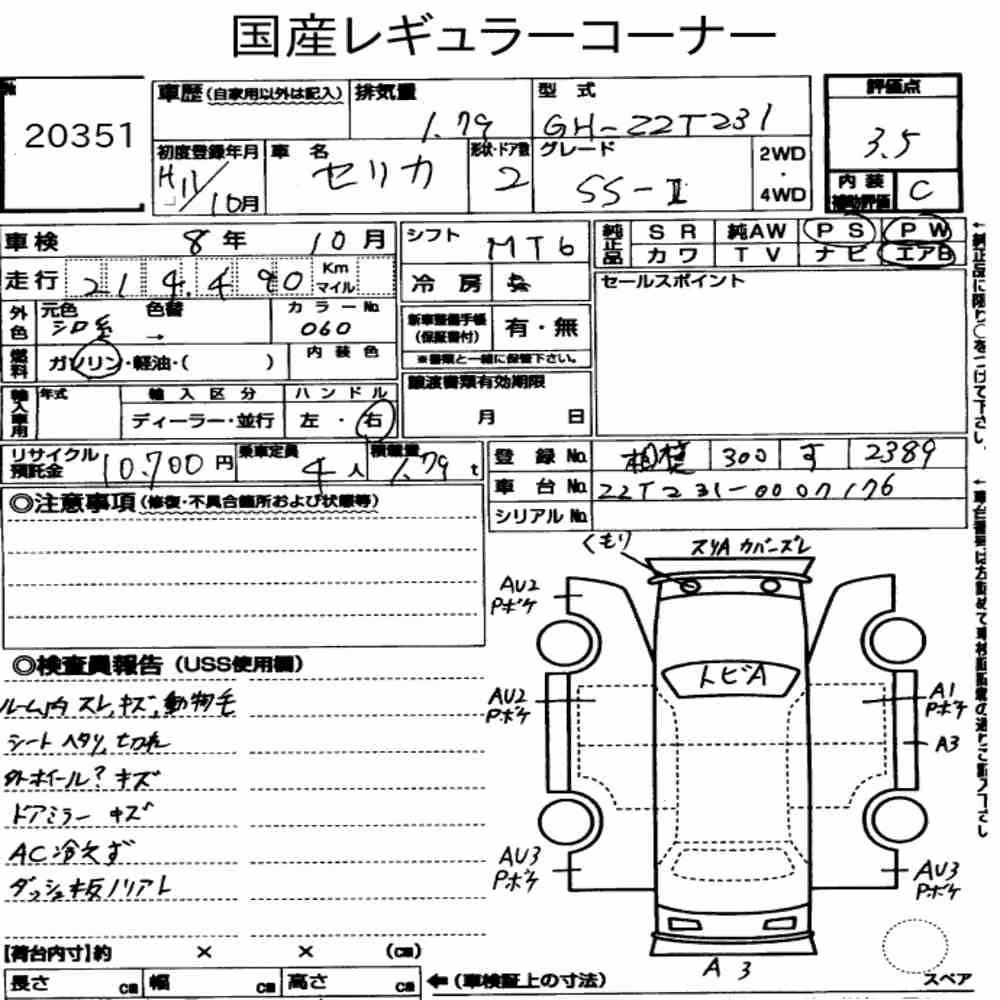 国産レギュラーコーナー
№
20351
車歴(自家用以外は記入)
排気量
1.79
型式
GH-ZZT231
評価点
3.5
初度登録年月
H11/10月
車名
セリカ
形状・ドア数
2
グレード
SS-Ⅱ
2WD
・
4WD
内装
補助評価
C
車検
8年 10月
シフト
MT6
純正品
SR 純AW PS PW
カワ TV ナビ エアB
走行
214.490
Km
マイル
冷房
セールスポイント
外色
元色
シロ系
色替
→
カラーNo.
060
新車整備手帳
(保証書付)
有・無
※書類と一緒に保管下さい。
燃料
ガソリン・軽油・( )
内装色
譲渡書類有効期限
月 日
輸入車用
年式
輸入区分
ディーラー・並行
ハンドル
左・右
リサイクル
預託金
10.700円
乗車定員
4人
積載量
1.79t
登録No.
相模 300 す 2389
車台No.
ZZT231-0007176
シリアルNo.
◎注意事項(修復・不具合箇所および状態等)
くもり
スリA カバーズレ
AU2
Pボケ
トビA
AU2
Pボケ
A1
Pボケ
A3
AU3
Pボケ
AU3
Pボケ
A3
◎検査員報告(USS使用欄)
ルーム内 スレ,キズ,動物毛
シート ヘタリ,切れ
外ホイール? キズ
ドアミラー キズ
AC冷えず
ダッシュ板ノリアト
【荷台内寸】約 × × (㎝)
長さ ㎝ 幅 ㎝ 高さ ㎝
←(車検証上の寸法)
スペア
←純正品に限り○をつけて下さい。